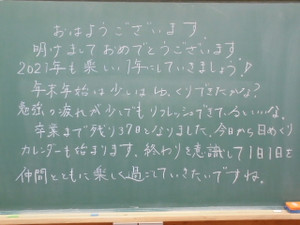 おはようございます。
明けましておめでとうございます
2021年も楽しい1年にしていきましょう!
年末年始は少しはゆっくりできたかな?
勉強の疲れが少しでもリフレッシュできているといいな。
卒業まで残り37日となりました。今日から日めくり
カレンダーも始まります。終わりを意識して1日1日を
仲間とともに楽しく過ごしていきたいですね。